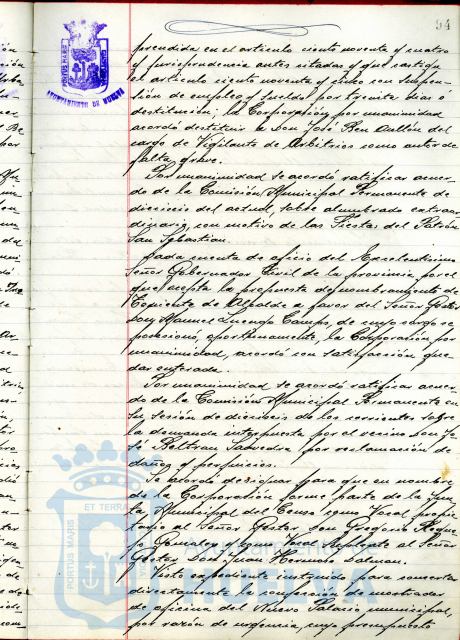 94
AYUNTAMIENTO DE HUELVA
prendida en el artículo ciento noventa y cuatro
y jurisprudencia antes citadas y que castiga
el artículo ciento noventa y cinco con suspen-
sión de empleo y sueldo por treinta días ó
destitución; la Corporación por unanimidad
acordó destituir a Don José Rey Dullón del
cargo de Vigilante de Arbitrios como autor de
falta grave.
Por unanimidad se acordó ratificar acuer-
do de la Comisión Municipal Permanente de
dieciseis del actual, sobre alumbrado extraor-
dinario con motivo de las Fiestas del Patrón
San Sebastian.
Dada cuenta de oficio del Excelentísimo
Señor Gobernador Civil de la provincia por el
que acepta la propuesta de nombramiento de
Teniente de Alcalde a favor del Señor Gestor
Don Manuel Luengo Campos, de cuyo cargo se
posesionó, oportunamente, la Corporación por
unanimidad, acordó con satisfacción que-
dar enterada.
Por unanimidad se acordó ratificar acuer-
do de la Comisión Municipal Permanente en
su sesión de dieciseis de los corrientes sobre
la demanda interpuesta por el vecino Don Jo-
sé Beltran Saavedra por reclamación de
daños y perjuicios.
Se acordó designar para que en nombre
de la Corporación forme parte de la Jun-
ta Municipal del Censo como Vocal propie-
tario al Señor Gestor, don Gregorio
Gonzalez y como Vocal suplente al Señor
Gestor don Juan Hermoso
Visto expediente instruido para concertar
directamente la confección de mostrador
de oficina del Nuevo Palacio municipal,
por razón de urgencia, cuyo presupuesto
PORTUS MARIS
ET TERRAE
Ayuntamiento de
HUELVA